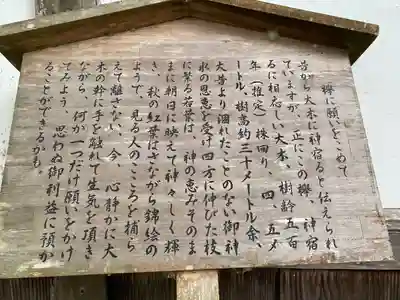 欅に願いをこめて
昔から大木に神宿ると伝えられ
ていますが、正にこの欅、神宿
るに相応しい大木、樹齢五百
年(推定)株回り、四、五メ
ートル、樹高約三十メートル余、
大昔より涸れたことのない御神
水の恩恵を受け四方に伸びた枝
に繁る若葉は、神の恵みそのま
まに朝日に映えて神々しく輝
き、秋の紅葉はさながら錦絵の
ようで、見る人のこころを捕ら
えて離さない。今、心静かに大
木の幹に手を触れて生気を頂き
ながら、何か一つだけ願いをかけ
てみよう、思わぬ御利益に預か
ることができるかも。